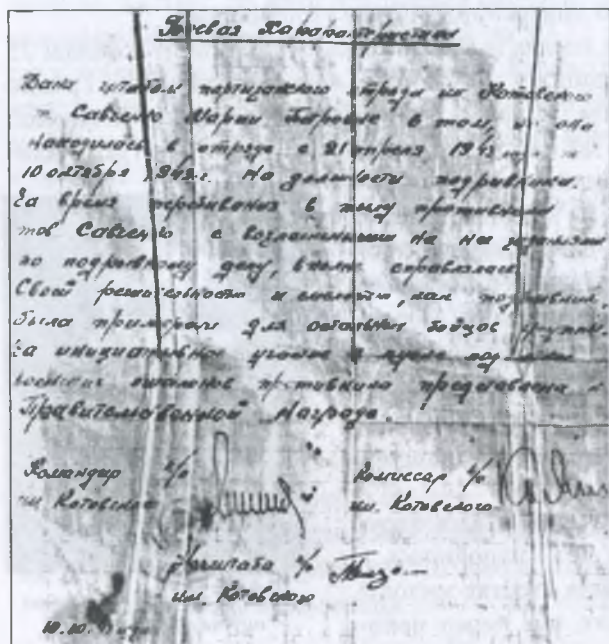 Боевая Характеристика
Дана штабом партизанского отряда им Котовского
т. Савченко Марии Петровне в том, что она
находилась в отряде с 21 апреля 1943 по
10 октября 1943г. На должности подрывника.
За время пребывания в тылу противника
тов Савченко с возложенными на нее
по подрывному делу, вполне справлялась
Своей решительностью и смелостью, как подрывник
была примером для остальных бойцов группы.
За инициативное участие в пуске под
воинских эшелонов противника представлена к
Правительственной Награде.
Командир п/о
им. Котовского
Комиссар п/о
им. Котовского
Начштаба п/о
им. Котовского
10.10.